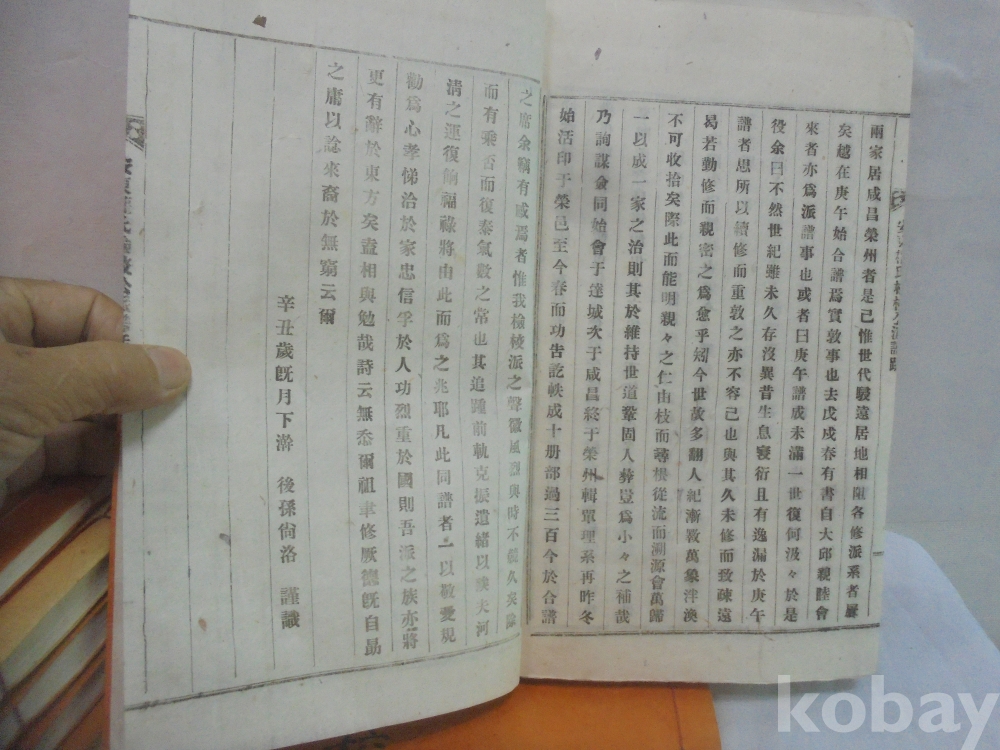 兩家居咸昌榮州者是已惟世代駸遠居地相阻各修派系者屢
矣越在庚午始合譜焉實敦事也去戊戌春有書自大邱親睦會
來者亦爲派譜事也或者曰庚午譜成未滿一世復何汲々於是
役余曰不然世紀雖未久存沒異昔生息寖衍且有逸漏於庚午
譜者思所以續修而重敦之亦不容已也與其久未修而致疎遠
曷若勤修而親密之爲愈乎矧今世故多翻人紀漸斁萬象泮渙
不可收拾矣際此而能明親々之仁由枝而尋根從流而溯源會萬歸
一以成一家之治則其於維持世道鞏固人彛豈爲小々之補哉
乃詢謀僉同始會于達城次于咸昌終于榮州輯單理系再昨冬
始活印于榮邑至今春而功告訖帙成十册部過三百今於合譜
之席余竊有感焉者惟我檢校派之聲徽風烈與時不 久矣
而有乘否而復泰氣數之常也其追踵前軌克振遺緒以 夫河
淸之運復 福祿將由此而爲之兆耶凡此同譜者一以敬愛規
勸爲心孝悌治於家忠信孚於人功烈重於國則吾派之族亦將
更有辭於東方矣盍相與勉哉詩云無忝爾祖聿修厥德旣自勗
之庸以諗來裔於無窮云爾
辛丑歲旣月下澣 後孫尙洛 謹識
kobay